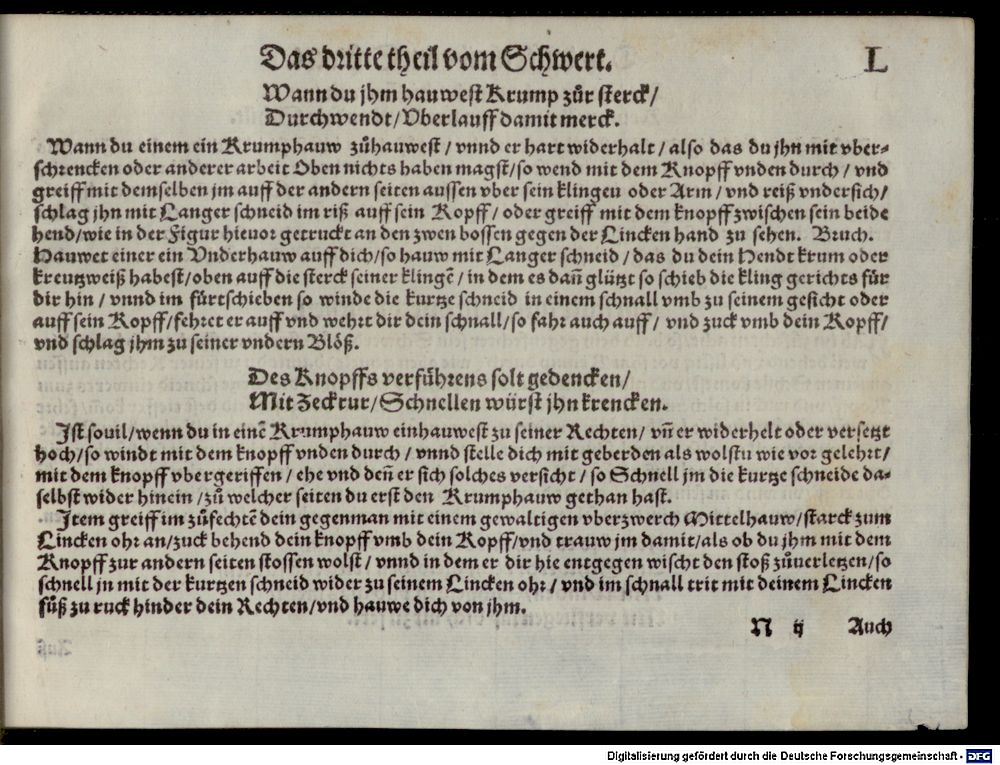 Das dritte theil vom Schwert. L
Wann du jhm hauwest Krump zůr sterck/
Durchwendt/ Vberlauff damit merck.
Wann du einem ein Krumphauw zůhauwest/ vnnd er hart widerhalt/ also das du jhn mit vber-
schrencken oder anderer arbeit Oben nichts haben magst/ so wend mit dem Knopff vnden durch/ vnd
greiff mit demselben jm auff der andern seiten aussen vber sein klingen oder Arm/ vnd reiß vndersich/
schlag jhn mit Langer schneid im riß auff sein Kopff/ oder greiff mit dem knopff zwischen sein beide
hend/ wie in der Figur hieuor getruckt an den zwen bossen gegen der Lincken hand zu sehen. Bruch.
Hauwet einer ein Vnderhauw auff dich/ so hauw mit Langer schneid/ das du dein Hendt krum oder
kreutzweiß habest/ oben auff die sterck seiner klingē/ in dem es dañ glützt so schieb die kling gerichts für
dir hin/ vnnd im fürtschieben so winde die kurtze schneid in einem schnall vmb zu seinem gesicht oder
auff sein Kopff/ fehret er auff vnd wehrt dir dein schnall/ so fahr auch auff/ vnd zuck vmb dein Kopff/
vnd schlag jhm zu seiner vndern Blöß.
Des Knopffs verführens solt gedencken/
Mit Zeckrur/ Schnellen würst jhn krencken.
Jst souil/ wenn du in einē Krumphauw einhauwest zu seiner Rechten/ vñ er widerhelt oder versetzt
hoch/ so windt mit dem knopff vnden durch/ vnnd stelle dich mit geberden als wolstu wie vor gelehrt/
mit dem knopff vbergeriffen/ ehe vnd deñ er sich solches versicht/ so Schnell jm die kurtze schneide da-
selbst wider hinein/ zů welcher seiten du erst den Krumphauw gethan hast.
Jtem greiff im zůfechtē dein gegenman mit einem gewaltigen vberzwerch Mittelhauw/ starck zum
Lincken ohr an/ zuck behend dein knopff vmb dein Kopff/ vnd trauw jm damit/ als ob du jhm mit dem
Knopff zur andern seiten stossen wolst/ vnnd in dem er dir hie entgegen wischt den stoß zůuerletzen/ so
schnell jn mit der kurtzen schneid wider zu seinem Lincken ohr/ vnd im schnall trit mit deinem Lincken
fůß zu ruck hinder dein Rechten/ vnd hauwe dich von jhm.
N ij Auch
Digitalisierung gefördert durch die Deutsche Forschungsgemeinschaft - DFG